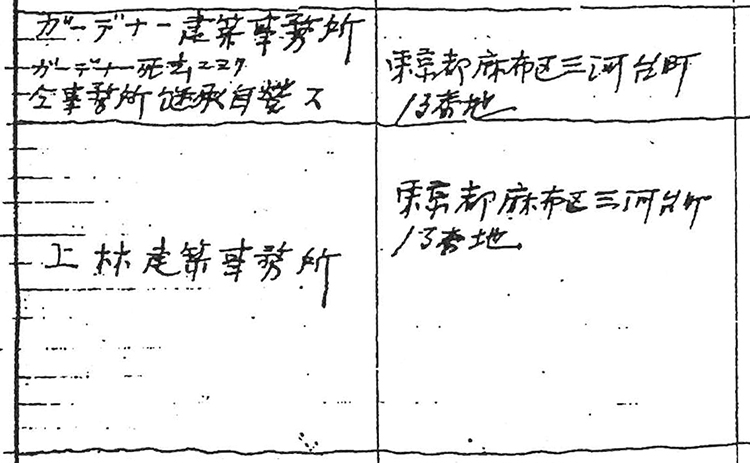 ガーデナー建築事務所
ガーデナー死去ニヨリ
仝事務所継承自営ス
東京都麻布区三河台町
13番地
東京都麻布区三河台町
13番地
上林建築事務所